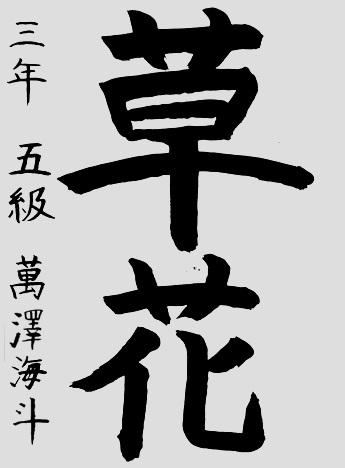 草花
三年 五級 萬澤海斗